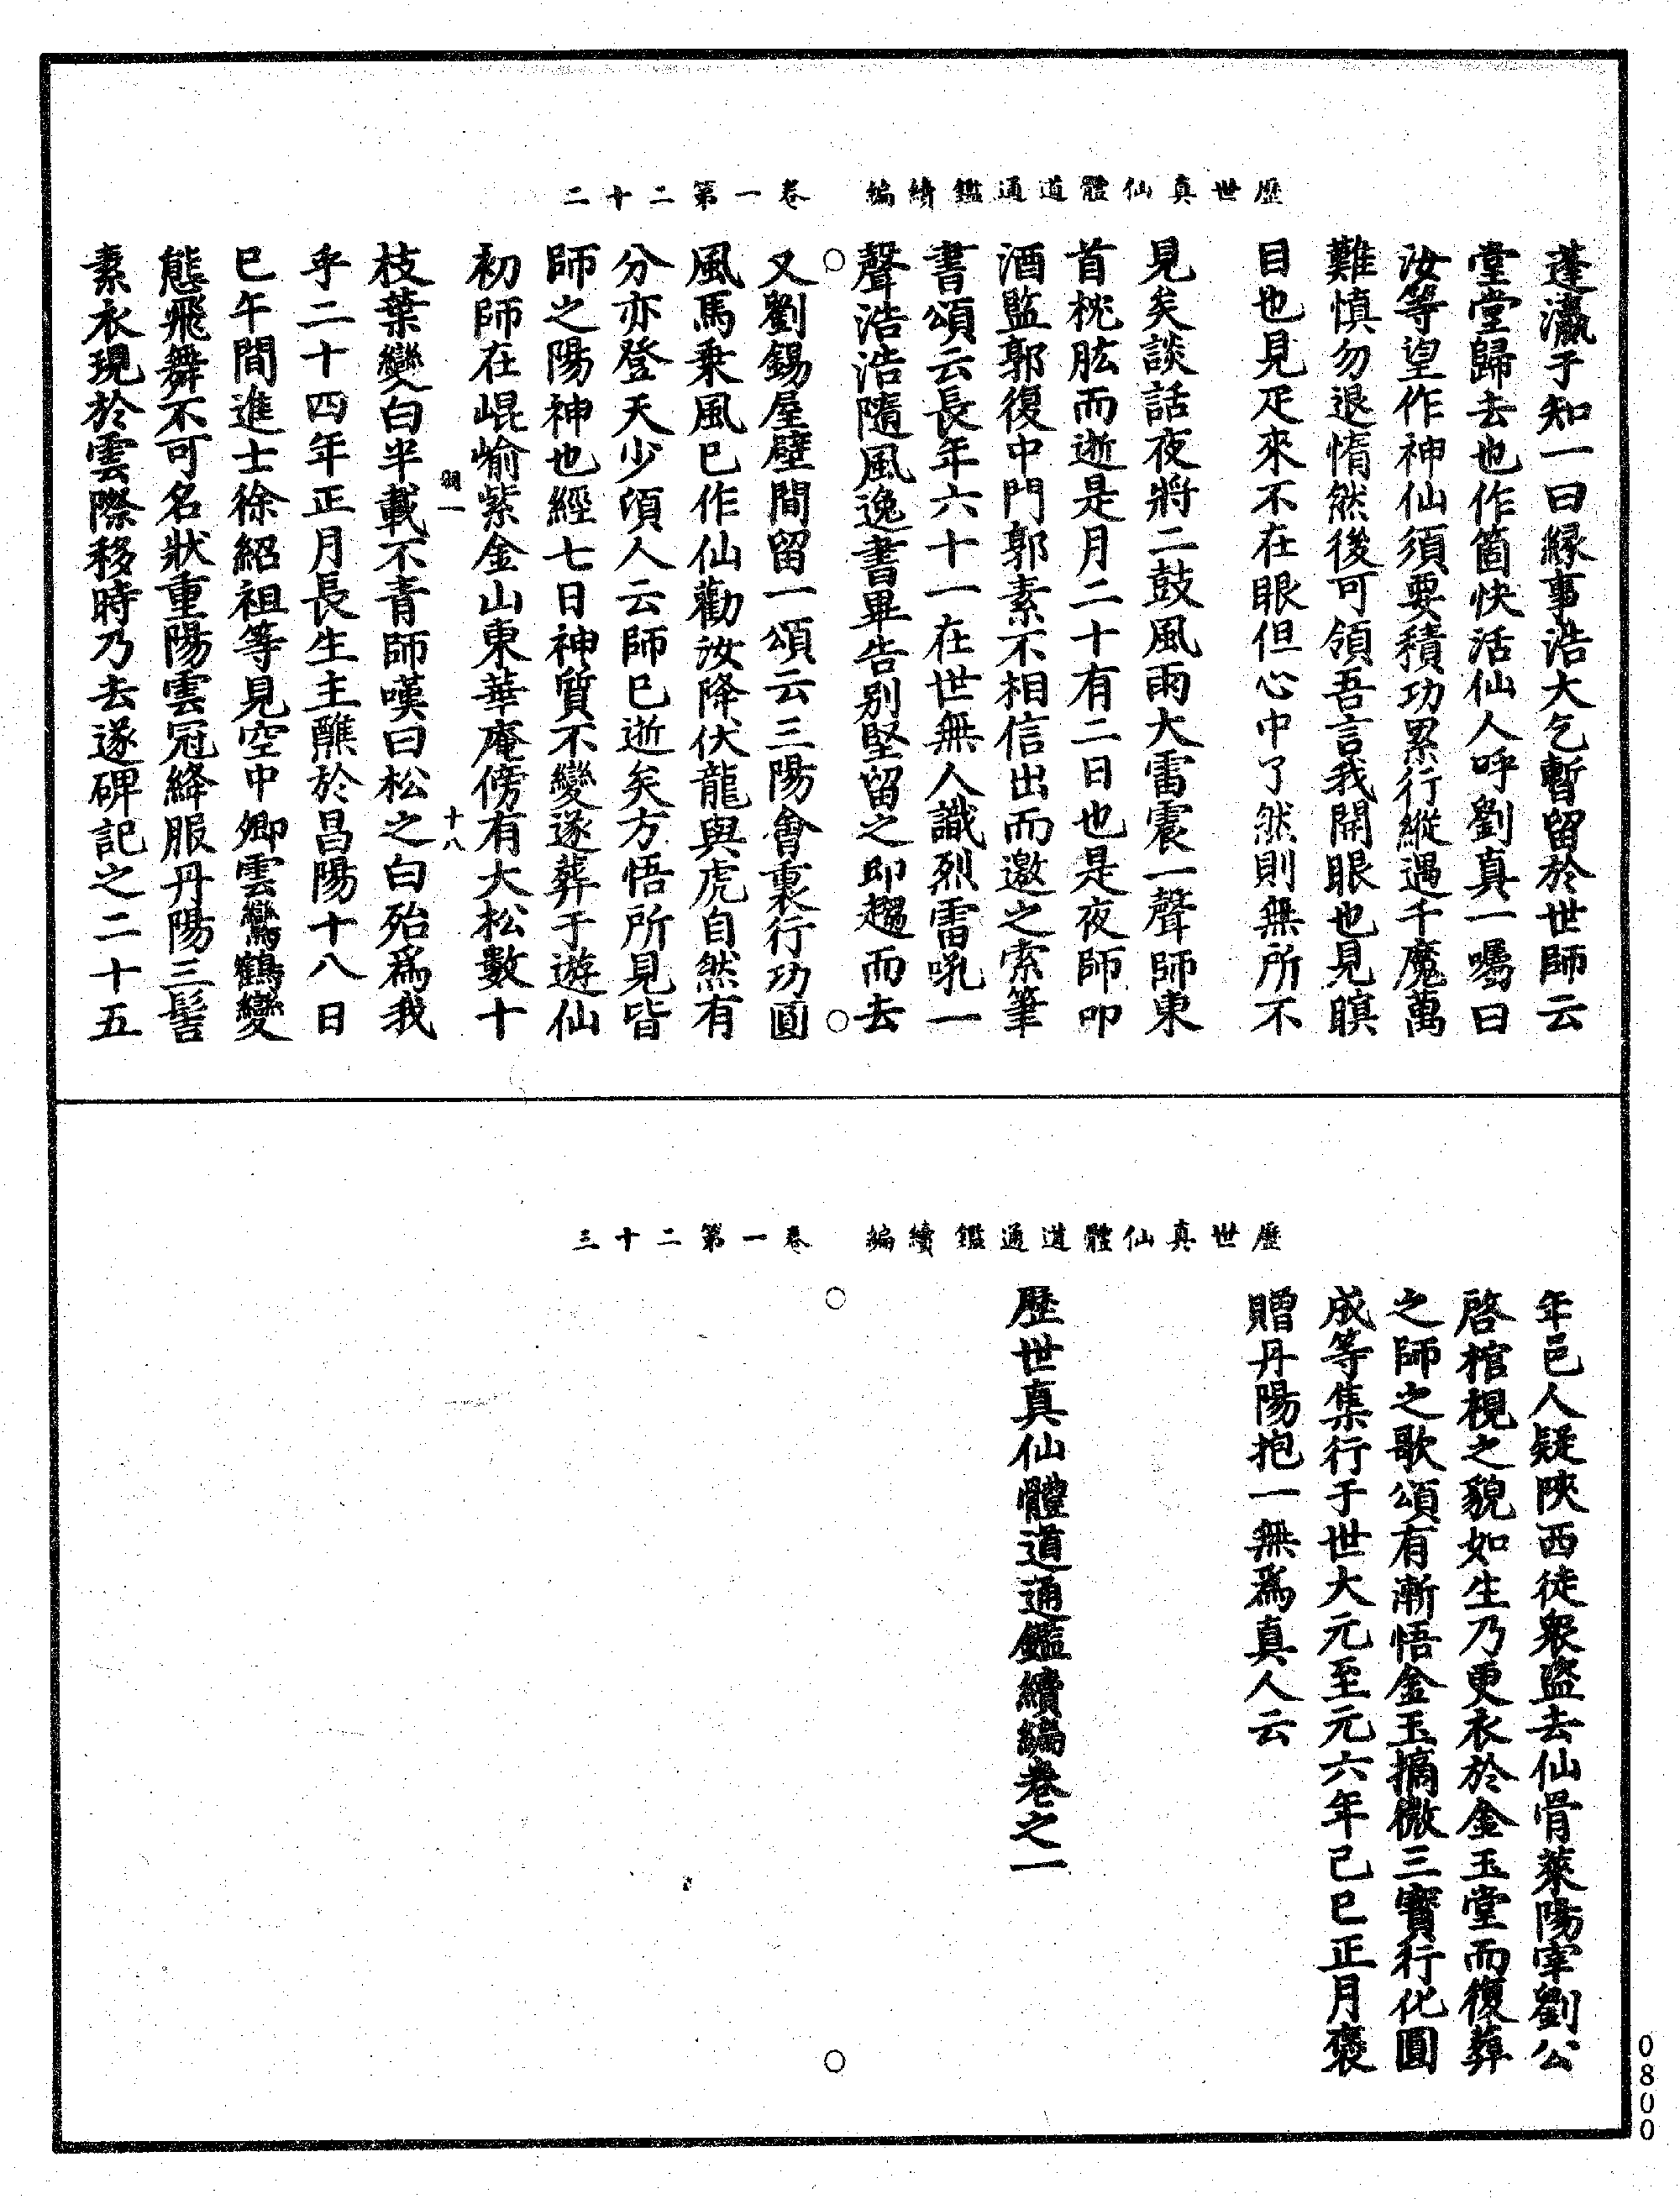 歷世真仙體道通鑑續編　卷一第二十二
蓬瀛于知一曰緣事浩大乞暫留於世師云
堂堂歸去也作箇快活仙人呼劉真一囑曰
汝等望作神仙須要積功累行縱遇千魔萬
難慎勿退惰然後可領吾言我開眼也見瞑
目也見疋來不在眼但心中了然則無所不
見矣談話夜將二鼓風雨大雷震一聲師東
首枕肱而逝是月二十有二日也是夜師叩
酒監郭復中門郭素不相信出而邀之索筆
書頌云長年六十一在世無人識烈雷吼一
聲浩浩隨風逸書畢告別堅留之即趨而去
○　○
又劉錫屋壁間留一頌云三陽會裏行功圓
風馬乘風已作仙勸汝降伏龍與虎自然有
分亦登天少頃人云師已逝矣方悟所見皆
師之陽神也經七日神質不變遂葬于遊仙
初師在崐崳紫金山東華庵傍有大松數十
翔一　十八
枝葉變白半載不青師嘆曰松之白殆爲我
乎二十四年正月長生主醮於昌陽十八日
巳午間進士徐紹祖等見空中卿雲鸞鶴變
態飛舞不可名狀重陽雲冠絳服丹陽三髻
素衣現於雲際移時乃去遂碑記之二十五
歷世真仙體道通鑑續編　卷一第二十三
年邑人疑陝西徒衆盜去仙骨萊陽宰劉公
啓棺視之貌如生乃更衣於金玉堂而復葬
之師之歌頌有漸悟金玉摘微三寶行化圓
成等集行于世大元至元六年己巳正月褒
贈丹陽抱一無爲真人云
歷世真仙體道通鑑續編卷之一
○　○
0800